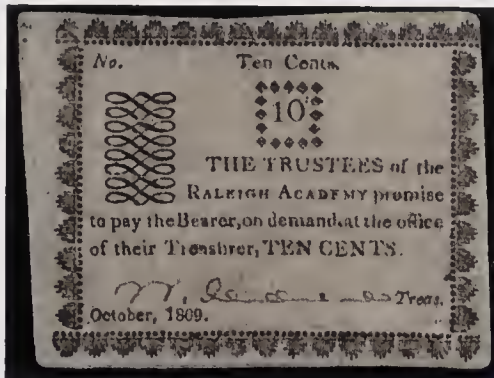 No. Ten Cents.
10
THE TRUSTEES of the
RALEIGH ACADEMY promise
to pay the Bearer, on demand, at the office
of their Treasurer, TEN CENTS.
Treas.
October, 1809.